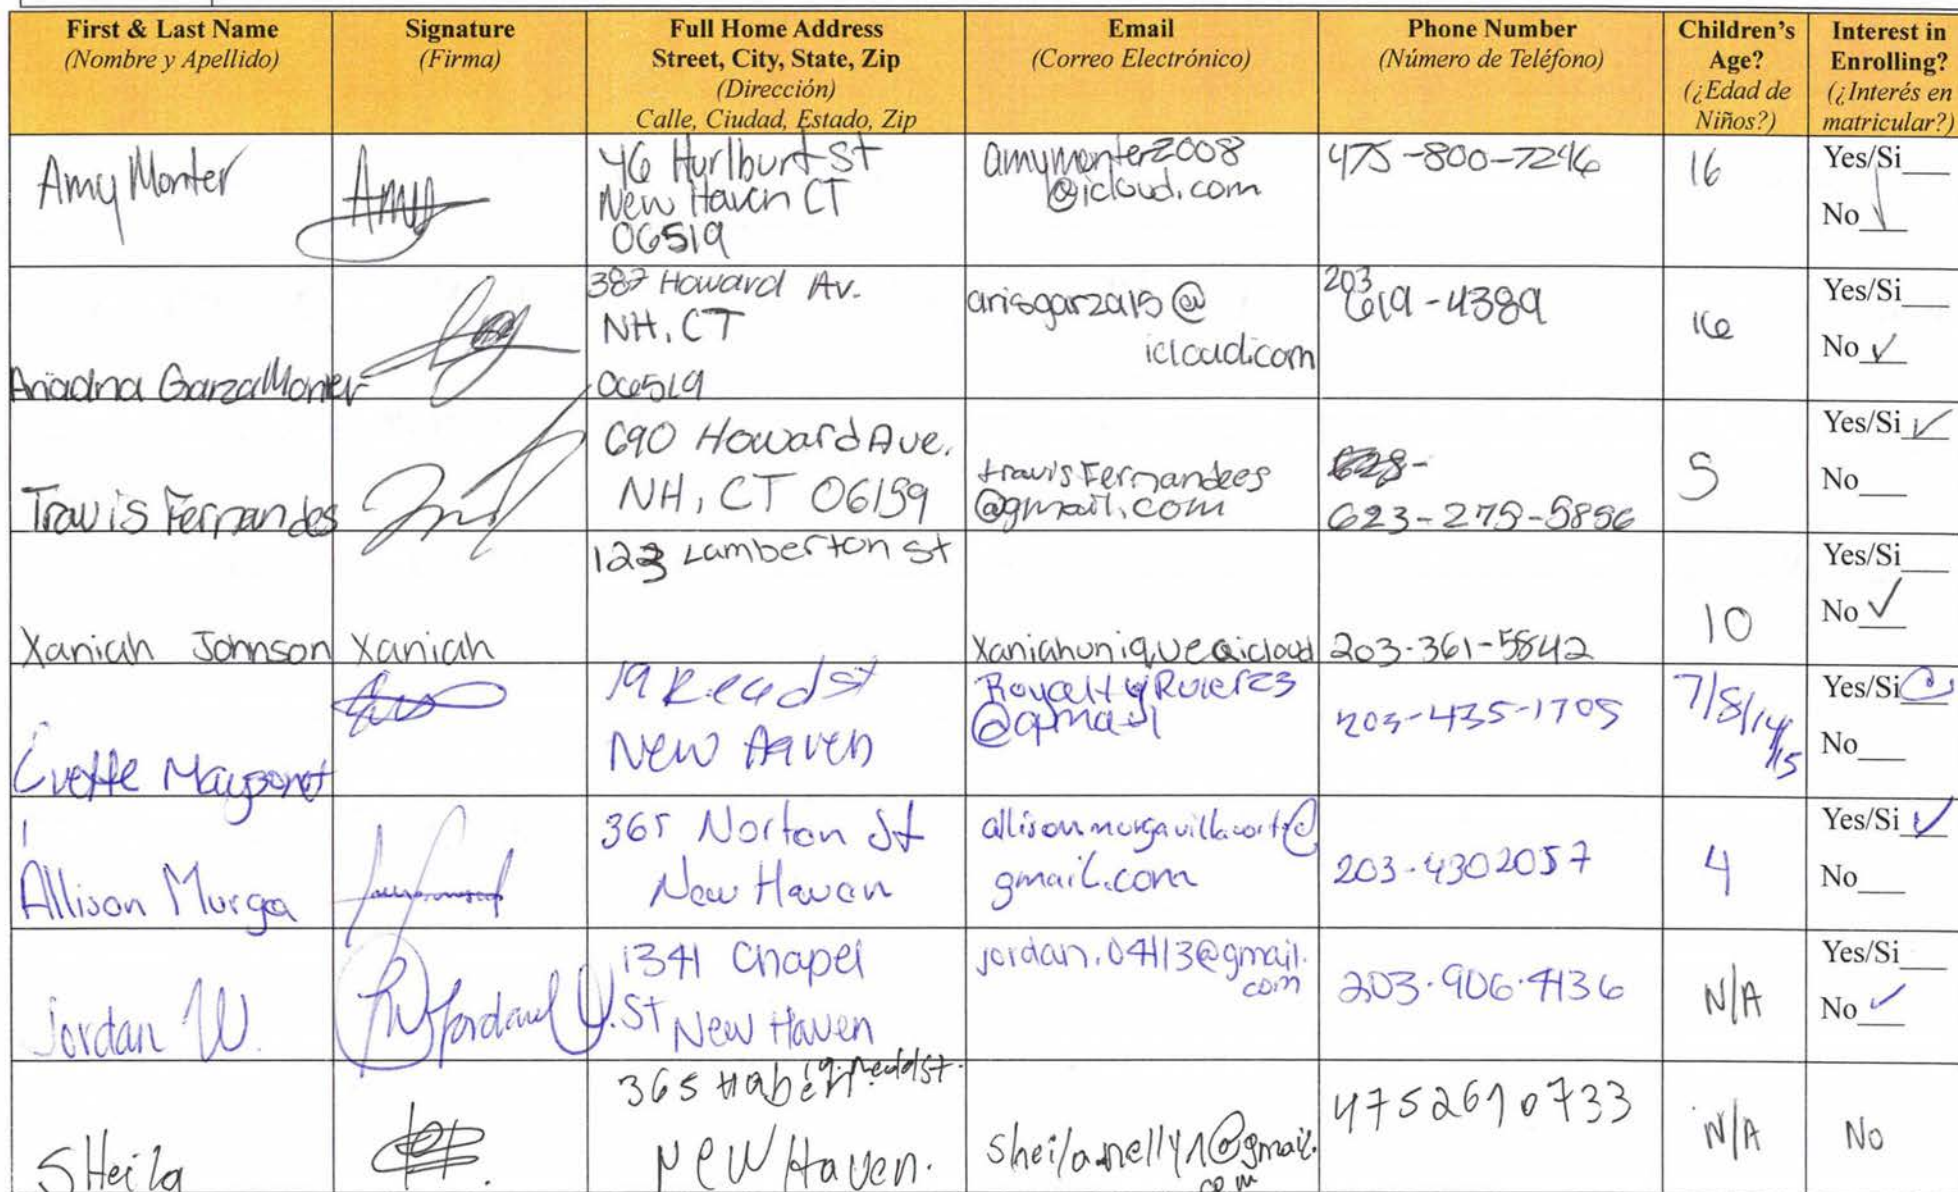 First & Last Name
(Nombre y Apellido)
Signature
(Firma)
Full Home Address
Street, City, State, Zip
(Dirección)
Calle, Ciudad, Estado, Zip
Email
(Correo Electrónico)
Phone Number
(Número de Teléfono)
Children's
Age?
(¿Edad de
Niños?)
Interest in
Enrolling?
(¿Interés en
matricular?)
Amy Monter
Amy
46 Hurlburt St
New Haven CT
06519
amymonter2008
@icloud.com
475-800-7246
16
Yes/Si
No ✓
Ariadna Garza Monter
387 Howard Av.
NH, CT
06519
arisgarza15@
icloud.com
203
619-4389
16
Yes/Si
No ✓
Travis Fernandes
690 Howard Ave.
NH, CT 06159
travisFernandees
@gmail.com
623-279-5856
5
Yes/Si ✓
No
Xaniah Johnson
Xaniah
123 Lamberton St
Xaniahunique@icloud
203-361-5842
10
Yes/Si
No ✓
19 Read st
New Haven
@gmail
203-435-1705
7/8/14/15
Yes/Si
No
Allison Murga
365 Norton St
New Haven
allisonmurgavillacorte@
gmail.com
203-4302057
4
Yes/Si ✓
No
Jordan W.
Jordan W.
1341 Chapel
St New Haven
jordan.04113@gmail.
com
203.906.4136
N/A
Yes/Si
No ✓
SHeila
365
New Haven.
sheilanelly1@gmail.
com
4752610733
N/A
No